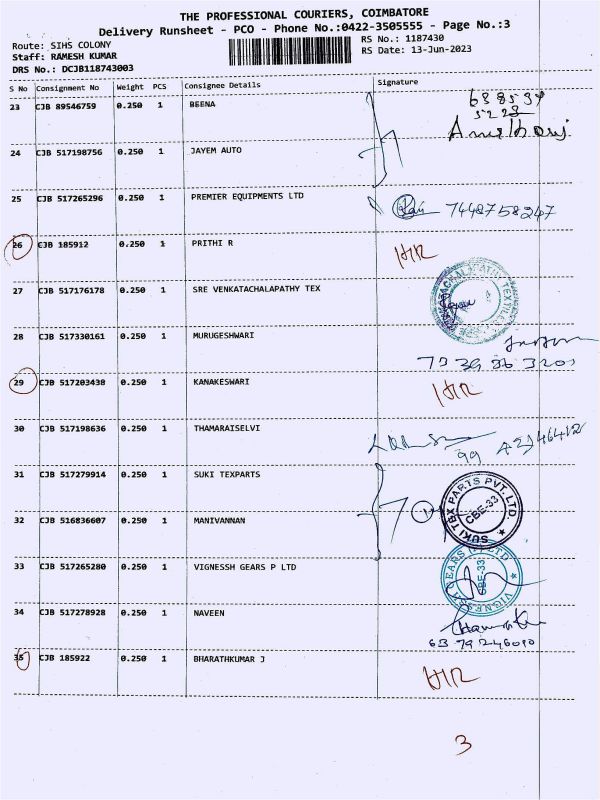 THE PROFESSIONAL COURIERS, COIMBATORE
Delivery Runsheet - PCO - Phone No.:0422-3505555 - Page No.:3
Route: SIHS COLONY
RS No.: 1187430
Staff: RAMESH KUMAR
RS Date: 13-Jun-2023
DRS No.: DCJB118743003
S No Consignment No Weight PCS Consignee Details Signature
23 CJB 89546759 0.250 1 BEENA
24 CJB 517198756 0.250 1 JAYEM AUTO
25 CJB 517265296 0.250 1 PREMIER EQUIPMENTS LTD 7448758247
26 CJB 185912 0.250 1 PRITHI R
27 CJB 517176178 0.250 1 SRE VENKATACHALAPATHY TEX
28 CJB 517330161 0.250 1 MURUGESHWARI
29 CJB 517203438 0.250 1 KANAKESWARI
30 CJB 517198636 0.250 1 THAMARAISELVI
31 CJB 517279914 0.250 1 SUKI TEXPARTS
SUKI TEX PARTS PVT. LTD.
CBE-33
32 CJB 516836607 0.250 1 MANIVANNAN
33 CJB 517265280 0.250 1 VIGNESSH GEARS P LTD
CBE-33
34 CJB 517278928 0.250 1 NAVEEN
6379246090
35 CJB 185922 0.250 1 BHARATHKUMAR J
3